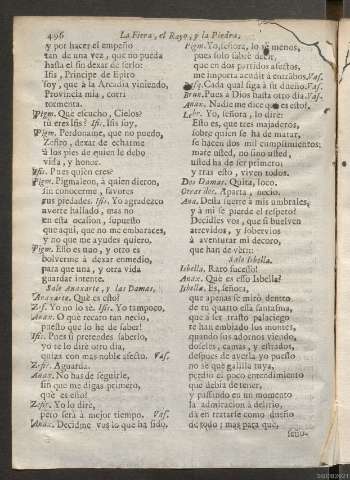 496 La Fiera, el Rayo, y la Piedra,
y por hacer el empeño
tan de una vez, que no pueda
hasta el fin dexar de serlo:
Isis, Principe de Epiro
soy, que à la Arcadia viniendo,
Provincia mia, corri
tormenta.
Pigm. Què escucho, Cielos?
tù eres Isis? Isis. Isis soy.
Pigm. Perdoname, que no puedo,
Zefiro, dexar de echarme
à los pies de quien le debo
vida, y honor.
Isis. Pues quien eres?
Pigm. Pigmaleon, à quien dieron,
sin conocerme, favores
tus piedades. Isis. Yo agradezco
averte hallado, mas no
en esta ocasion, supuesto
que aqui, que no me embaraces,
y no que me ayudes quiero.
Pigm. Esso es uno, y otro es
bolverme à dexar enmedio,
para que una, y otra vida
guardar intente.
Sale Anaxarte, y las Damas.
Anaxarte. Què es esto?
Zef. Yo no lo sè. Isis. Yo tampoco.
Anax. O què recato tan necio,
puesto que lo he de saber!
Isis. Pues si pretendes saberlo,
yo te lo dirè otro dia,
quizà con mas noble afecto. Vas.
Zefir. Aguarda.
Anax. No has de seguirle,
sin que me digas primero,
què es esto?
Zefir. Yo lo dirè,
pero serà à mejor tiempo. Vas.
Anax. Decidme vos lo que ha sido.
Pigm. Yo, señora, lo sè menos,
pues solo sabrè decir,
que en dos partidos afectos,
me importa acudir à entrambos. Vas.
Cada qual siga à su dueño. Vas.
Brun. Pues à Dios hasta otro dia. Vas.
Anax. Nadie me dice què es esto?
Yo, señora, lo dirè:
Esto es, que tres majaderos,
sobre quien se ha de matar,
se hacen dos mil cumplimientos;
mate usted, no sino usted,
usted ha de ser primero;
y tras esto, viven todos.
Dos Damas. Quita, loco.
Otras dos. Aparta, necio.
Ana. Desta suerte à mis umbrales,
y à mi se pierde el respeto?
Decidles vos, que si buelven
atrevidos, y sobervios
à aventurar mi decoro,
que han de vèr::
Sale Isbella.
Isbella. Raro sucesso!
Anax. Què es esso Isbella?
Isbella. Es, señora,
que apenas se mirò dentro
de tu quarto essa fantasma,
que à ser trasto palaciego
te han embiado los montes,
quando sus adornos viendo,
doseles, camas, y estrados,
despues de averla yo puesto
no sè què galilla tuya,
perdiò el poco entendimiento
que debia de tener,
y passando en un momento
la admiracion à delirio,
dà en tratarse como dueño
de todo; mas para què,
seño-